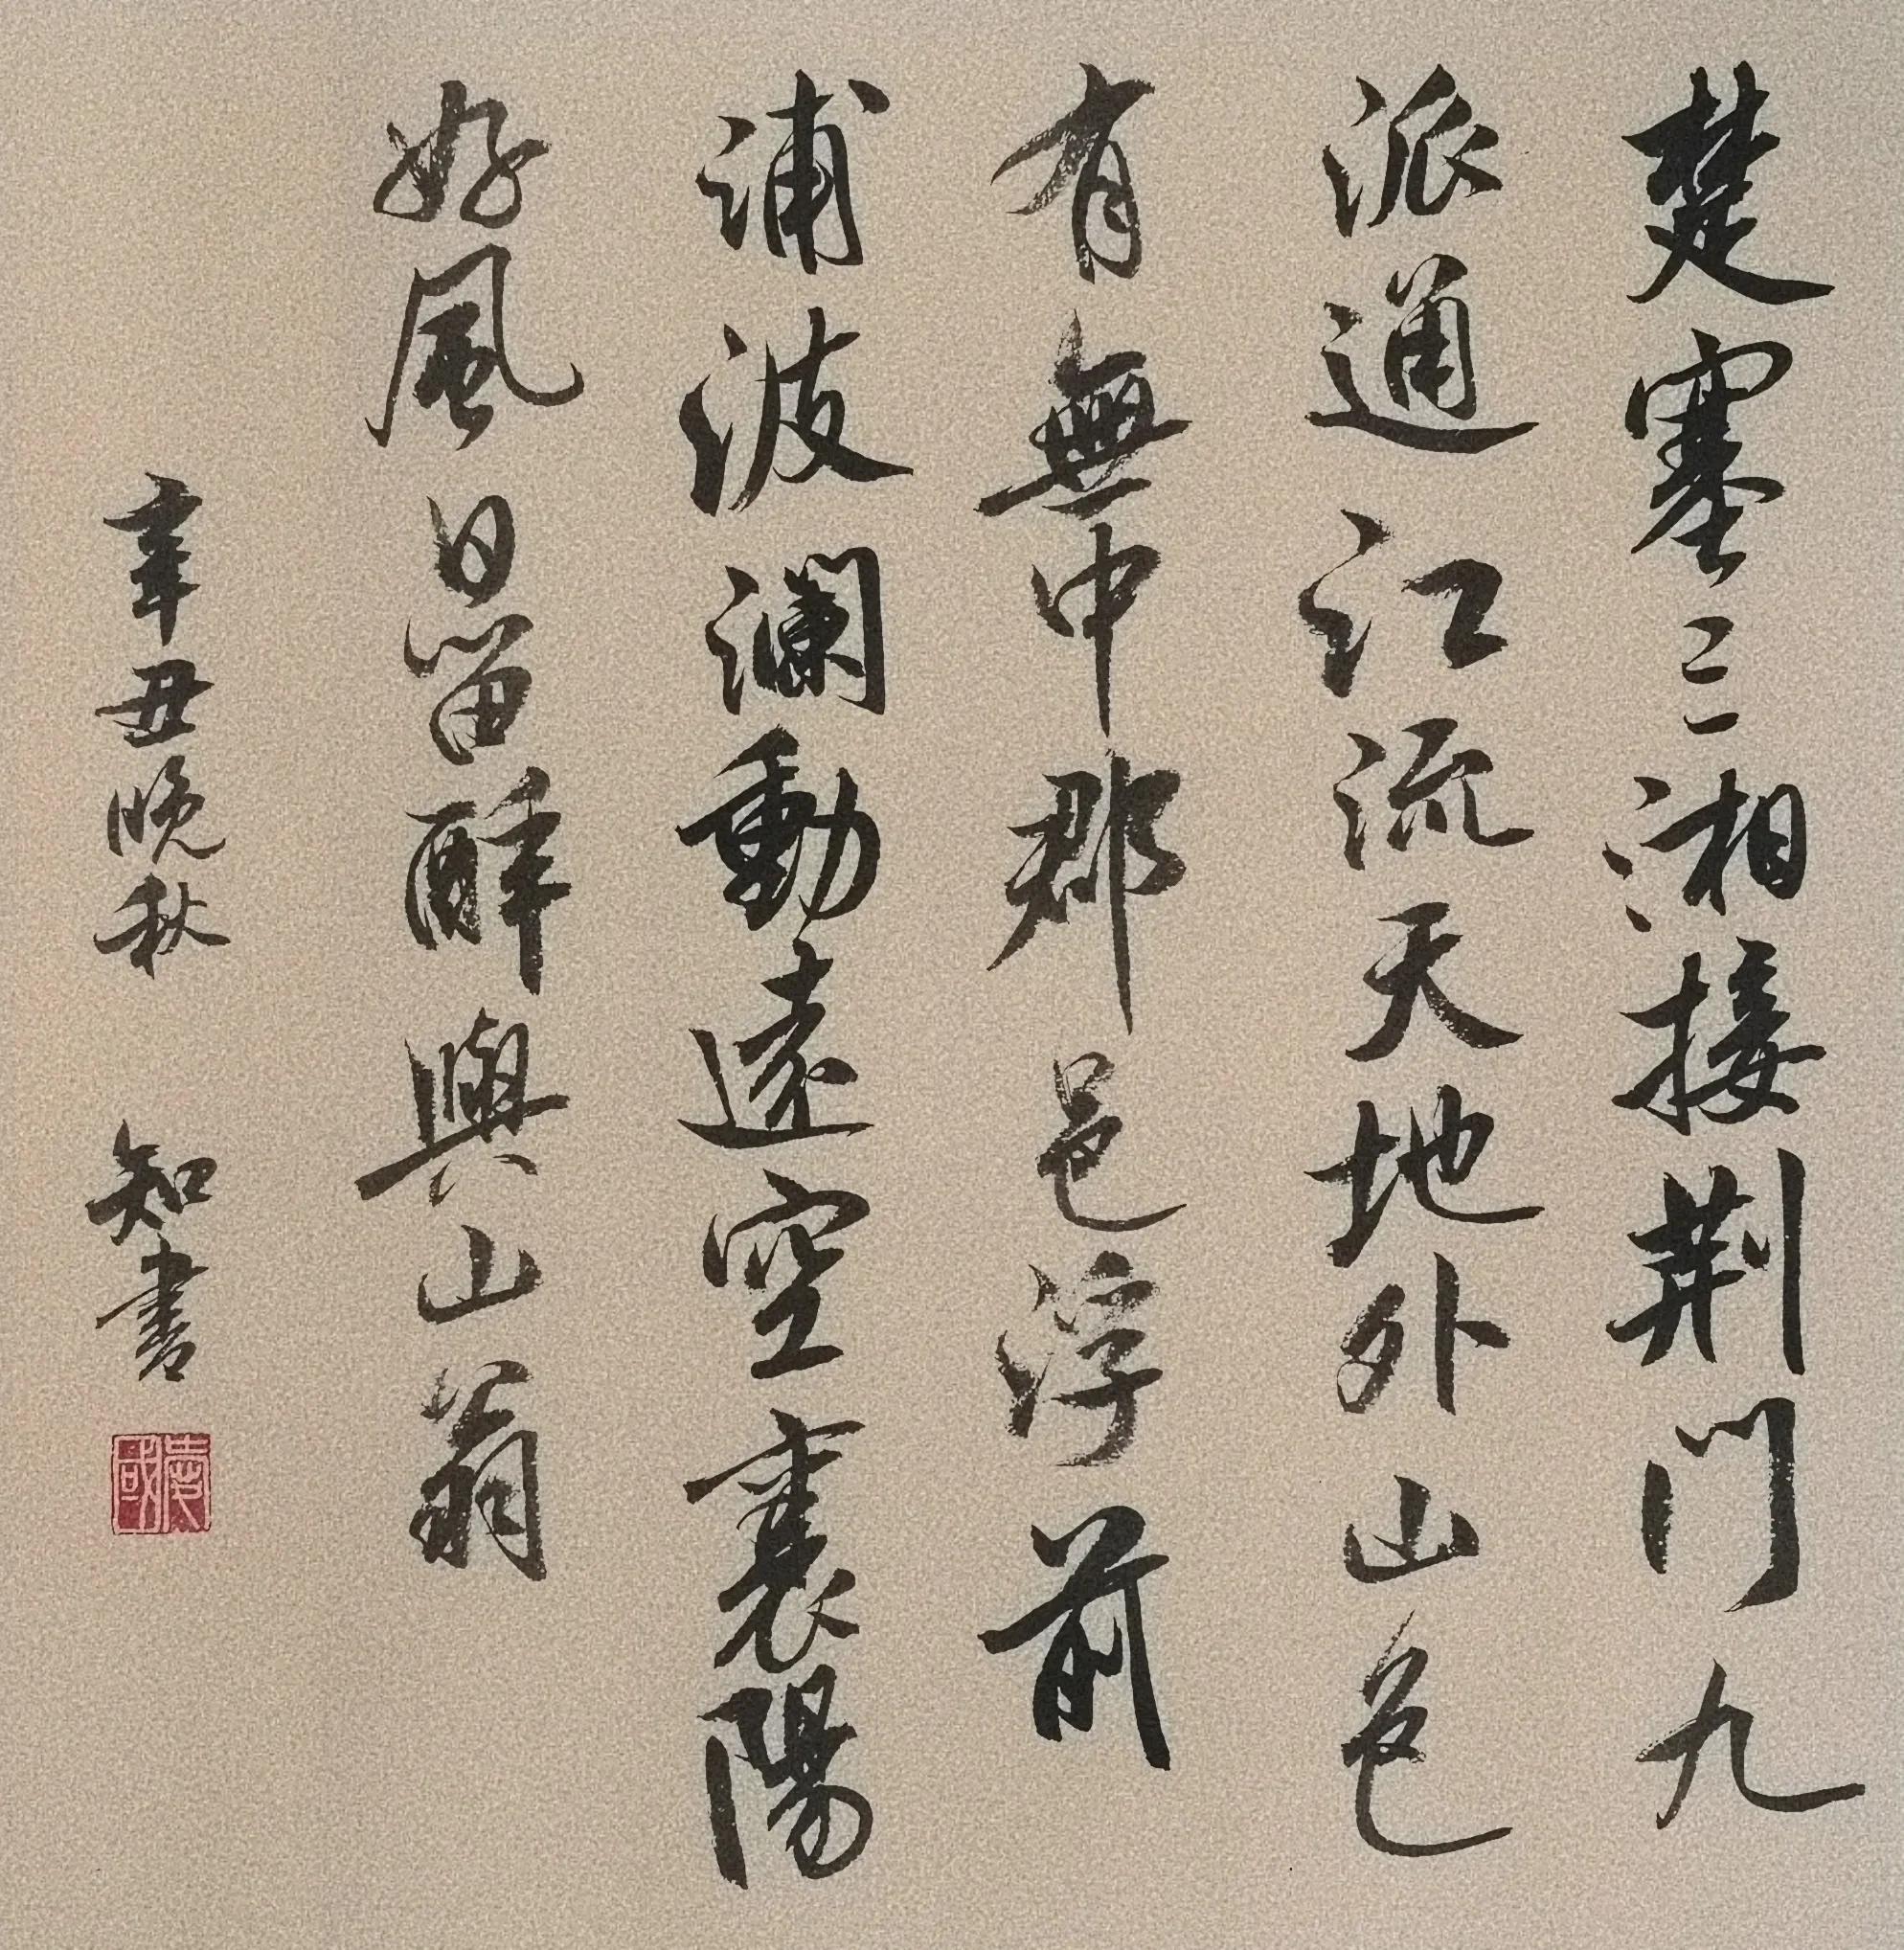 楚塞三湘接荆門九
派通江流天地外山色
有無中郡邑浮前
浦波瀾動遠空襄陽
好風日留醉與山翁
辛丑晚秋
知書